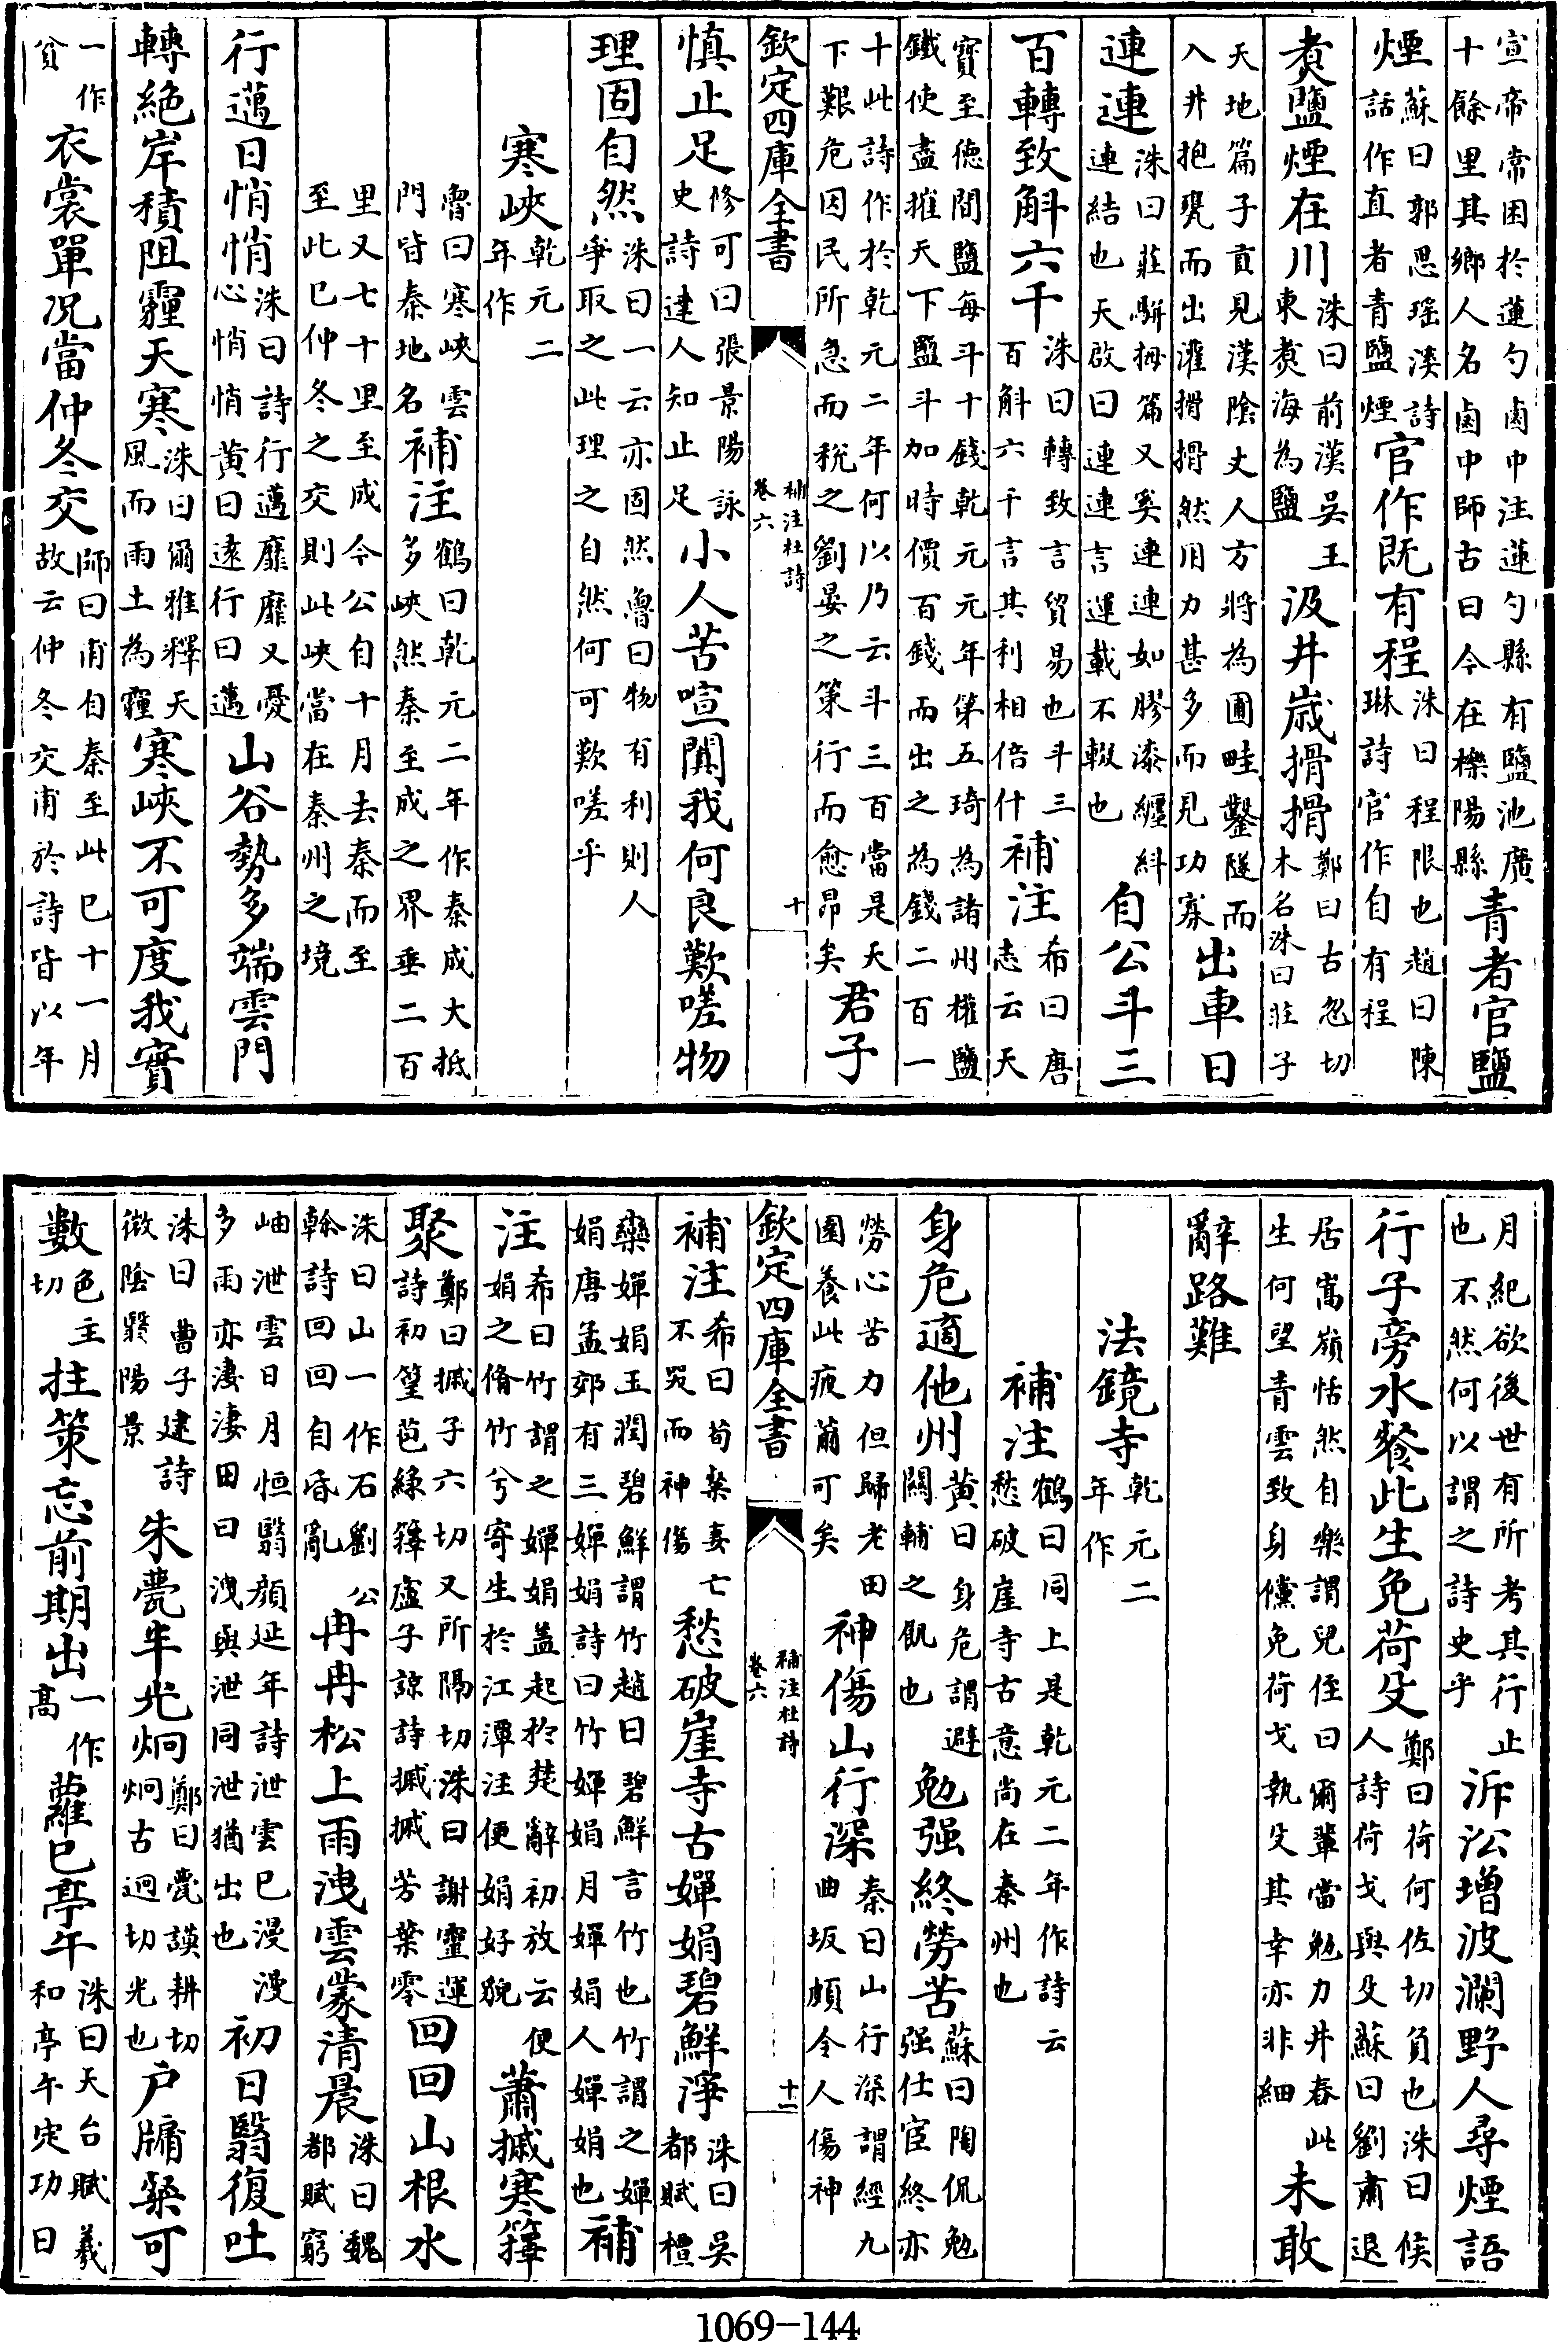 宣帝常困於蓮勺鹵中注蓮勺縣有鹽池廣
十餘里其鄉人名鹵中師古曰今在櫟陽縣青者官鹽
煙蘇曰郭思瑶溪詩話作直者青鹽煙官作既有程洙曰程限也趙曰陳琳詩官作自有程
煮鹽煙在川洙曰前漢吳王東煮海為鹽汲井歲搰搰鄭曰古忽切木名洙曰莊子
天地篇子貢見漢陰丈人方將為圃畦鑿隧而入井抱甕而出灌搰搰然用力甚多而見功寡出車日
連連洙曰莊駢拇篇又奚連連如膠漆纏糾連結也天啟曰連連言運載不輟也自公斗三
百轉致斛六千洙曰轉致言貿易也斗三百斛六千言其利相倍什補注希曰唐志云天
寳至德間鹽每斗十錢乾元元年第五琦為諸州榷鹽鐵使盡搉天下鹽斗加時價百錢而出之為錢二百一
十此詩作於乾元二年何以乃云斗三百當是天下艱危因民所急而税之劉晏之策行而愈昂矣君子
欽定四庫全書 補注杜詩 卷六 十
慎止足修可曰張景陽詠史詩達人知止足小人苦喧闐我何良歎嗟物
理固自然洙曰一云亦固然魯曰物有利則人爭取之此理之自然何可歎嗟乎
寒峽乾元二年作
魯曰寒峽雲門皆秦地名補注鶴曰乾元二年作秦成大抵多峽然秦至成之界垂二百
里又七十里至成今公自十月去秦而至至此已仲冬之交則此峽當在秦州之境
行邁日悄悄洙曰詩行邁靡靡又憂心悄悄黃曰遠行曰邁山谷勢多端雲門
轉絶岸積阻霾天寒洙曰爾雅釋天風而雨土為霾寒峽不可度我實
一作貧衣裳單況當仲冬交師曰甫自秦至此已十一月故云仲冬交甫於詩皆以年
月紀欲後世有所考其行止也不然何以謂之詩史乎泝沿增波瀾野人尋煙語
行子旁水餐此生免荷殳鄭曰荷何佐切負也洙曰候人詩荷戈與殳蘇曰劉肅退
居嵩嶺恬然自樂謂兒侄曰爾輩當勉力井春此生何望青雲致身儻免荷戈執殳其幸亦非細未敢
辭路難
法鏡寺乾元二年作
補注鶴曰同上是乾元二年作詩云愁破崖寺古意尚在秦州也
身危適他州黃曰身危謂避關輔之飢也勉强終勞苦蘇曰陶侃勉强仕宦終亦
勞心苦力但歸老田園養此疲薾可矣神傷山行深秦曰山行深謂經九曲坂頗令人傷神
欽定四庫全書 補注杜詩 卷六 十一
補注希曰荀粲妻亡不哭而神傷愁破崖寺古嬋娟碧鮮淨洙曰吳都賦檀
欒嬋娟玉潤碧鮮謂竹趙曰碧鮮言竹也竹謂之嬋娟唐孟郊有三嬋娟詩曰竹嬋娟月嬋娟人嬋娟也補
注希曰竹謂之嬋娟蓋起於楚辭初放云便娟之脩竹兮寄生於江潭注便娟好貌蕭摵寒籜
聚鄭曰摵子六切又所隔切洙曰謝靈運詩初篁苞緑籜盧子諒詩摵摵芳葉零回回山根水
洙曰山一作石劉公幹詩回回自昏亂冉冉松上雨洩雲蒙清晨洙曰魏都賦窮
岫泄雲日月恒翳顏延年詩泄雲已漫漫多雨亦淒淒田曰洩與泄同泄猶出也初日翳復吐
洙曰曹子建詩微陰翳陽景朱甍半光炯鄭曰甍謨耕切炯古迥切光也户牖粲可
數色主切拄策忘前期出一作高蘿已亭午洙曰天台賦羲和亭午定功曰
1069-144